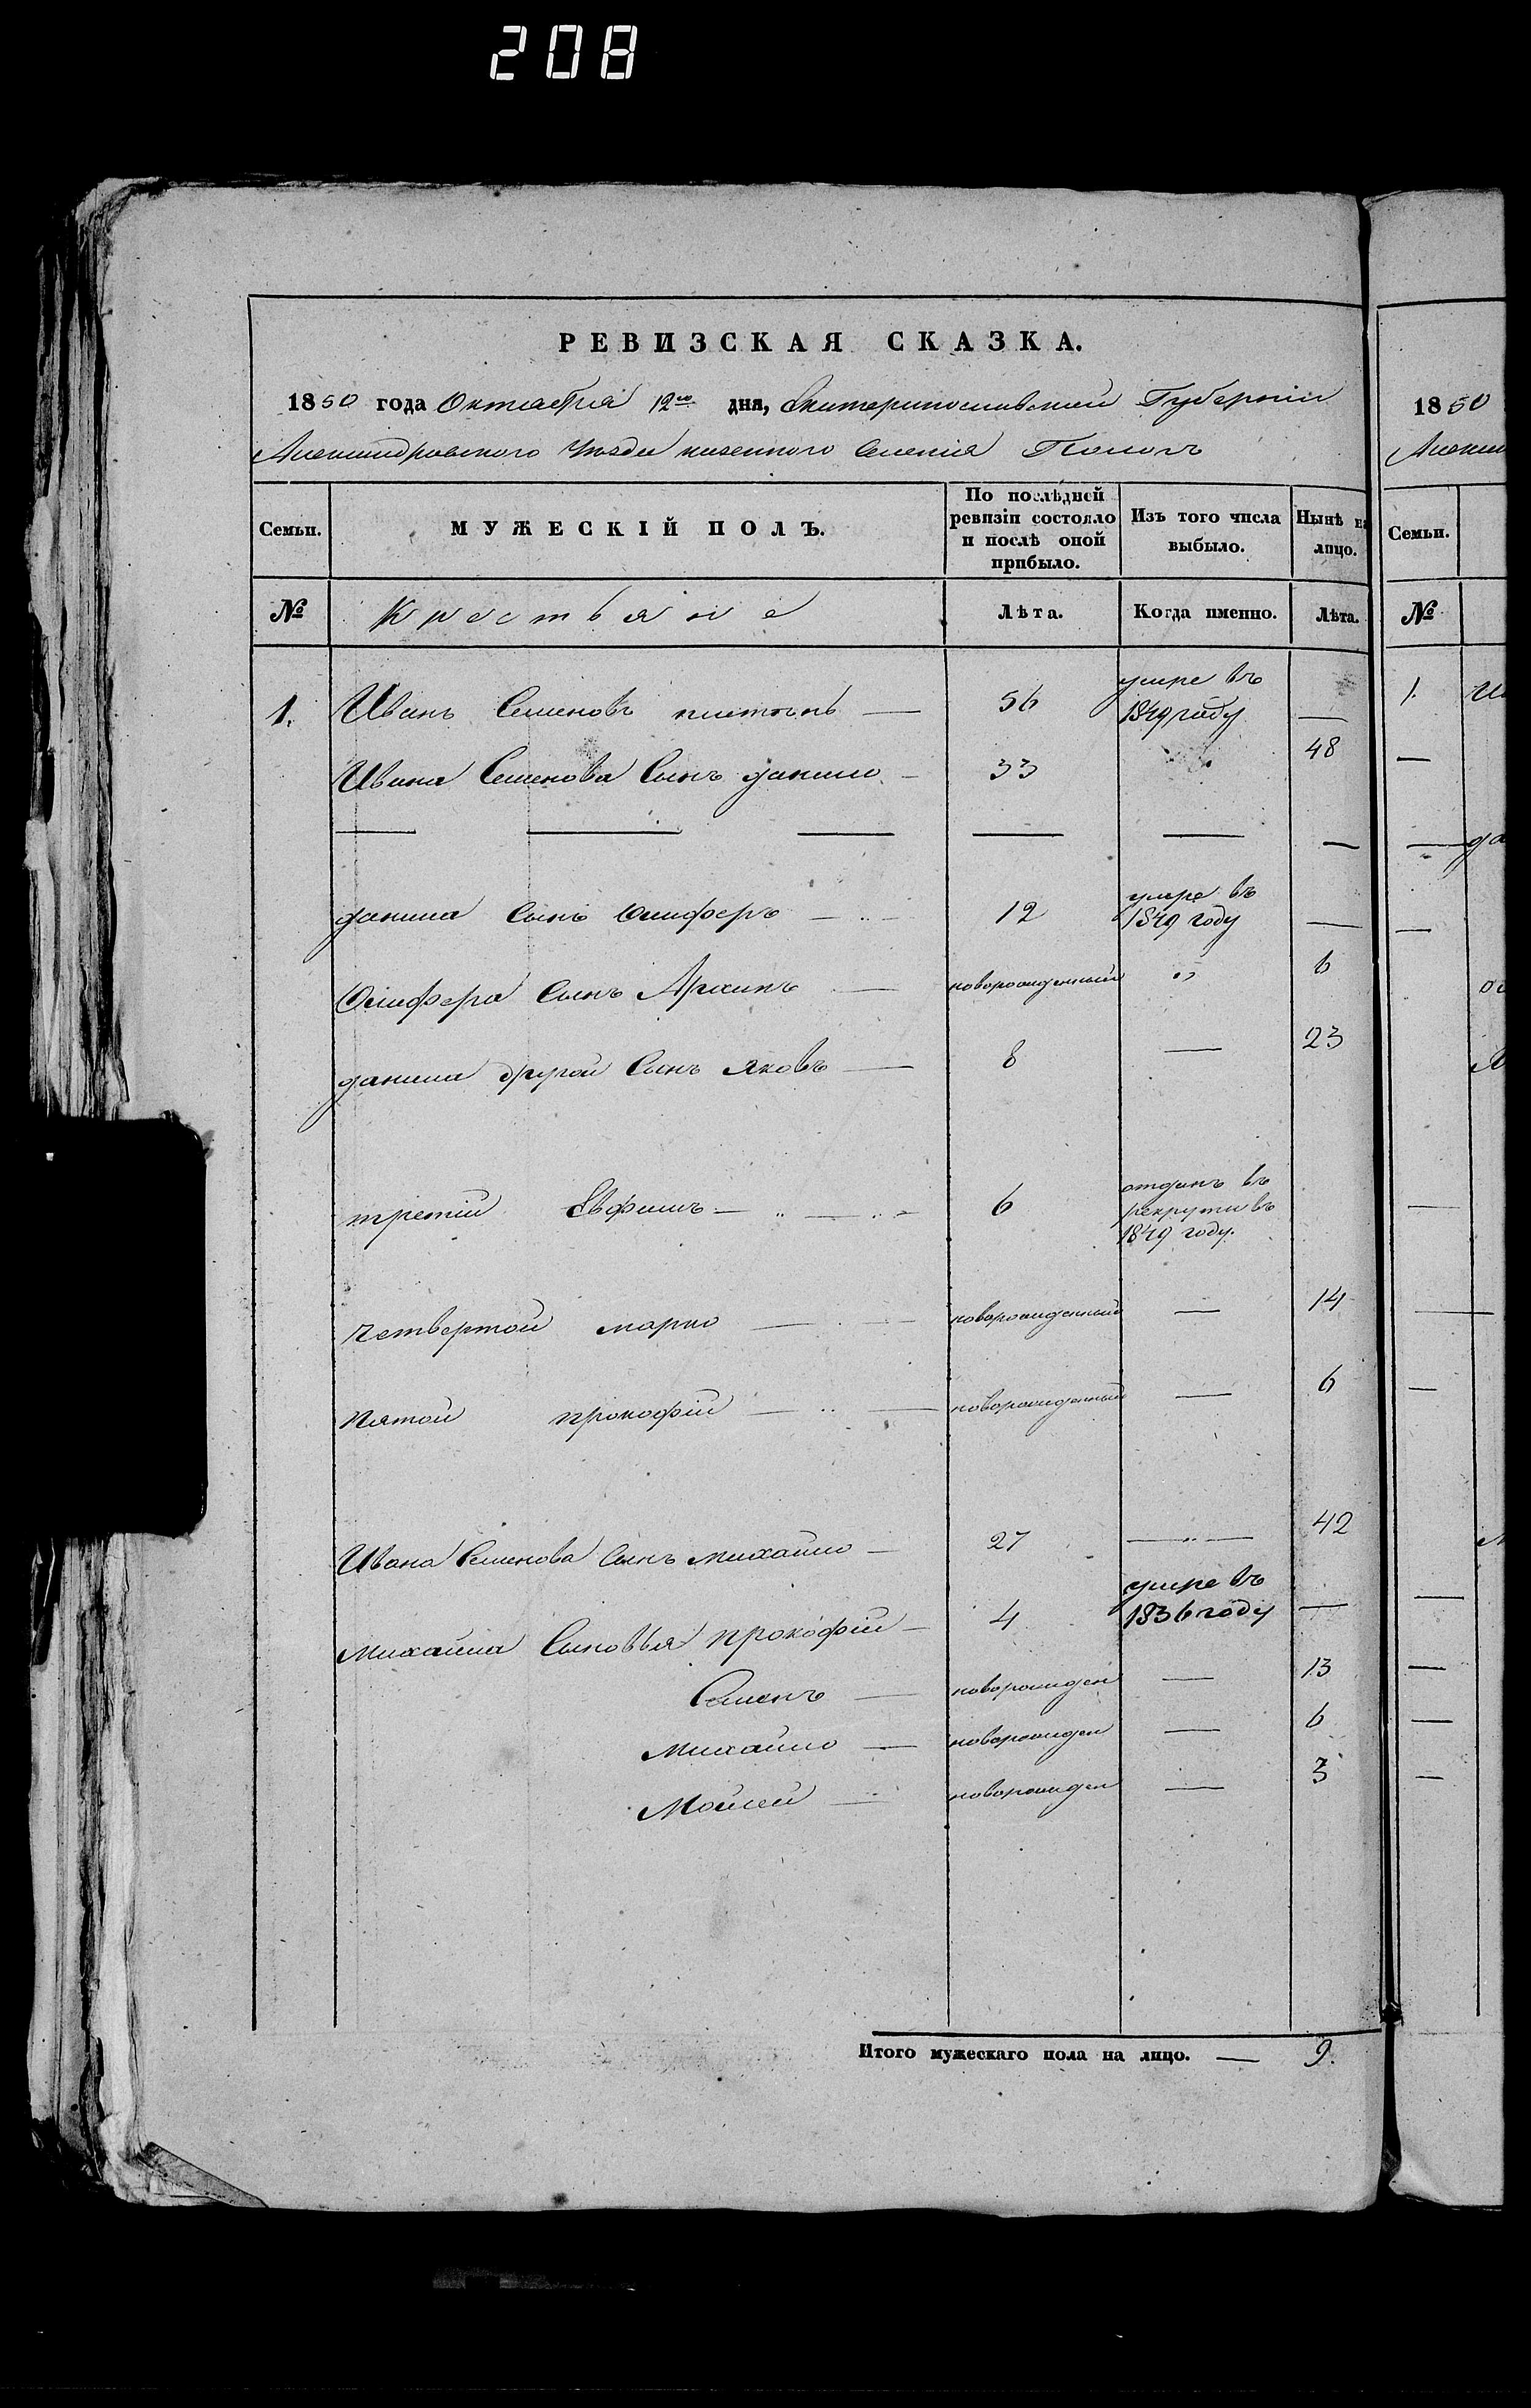 208
РЕВИЗСКАЯ СКАЗКА.
1850 года Октября 12го дня, Екатеринославской Губернии
Александровского Уезда казенного Селения Пологъ
Семьи. МУЖЕСКІЙ ПОЛЪ. По послѣдней ревизіи состояло и послѣ оной прибыло. Изъ того числа выбыло. Нынѣ на лицо.
№ Крестьяне Лѣта. Когда именно. Лѣта.
1. Иванъ Семеновъ 56 умре въ 1849 году —
Ивана Семенова Сынъ данило — 33 48
данила Сынъ Олиферъ — 12 умре въ 1849 году —
Олифера Сынъ Архипъ — новорожденный „ 6
данила другой Сынъ Яковъ — 8 — 23
третій Евфимъ — 6 отданъ въ рекруты въ 1849 году.
четвертой марко — новорожденный — 14
пятой прокофій — новорожденный — 6
Ивана Семенова Сынъ михайло — 27 — 42
михайла Сыновья прокофій — 4 умре въ 1836 году —
Семенъ — новорожден — 13
михайло — новорожден — 6
Мойсей — новорожден — 3
Итого мужескаго пола на лицо. — 9.
1850
Семьи.
№
1.